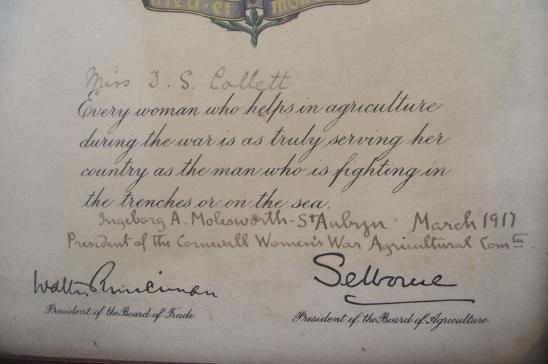 Dieu · et mon
Miss D. S. Collett
Every woman who helps in agriculture
during the war is as truly serving her
country as the man who is fighting in
the trenches or on the sea.
Ingeborg A. Molesworth-St Aubyn. March 1917
President of the Cornwall Women's War Agricultural Comtee.
Walter Runciman
Selborne
President of the Board of Trade
President of the Board of Agriculture